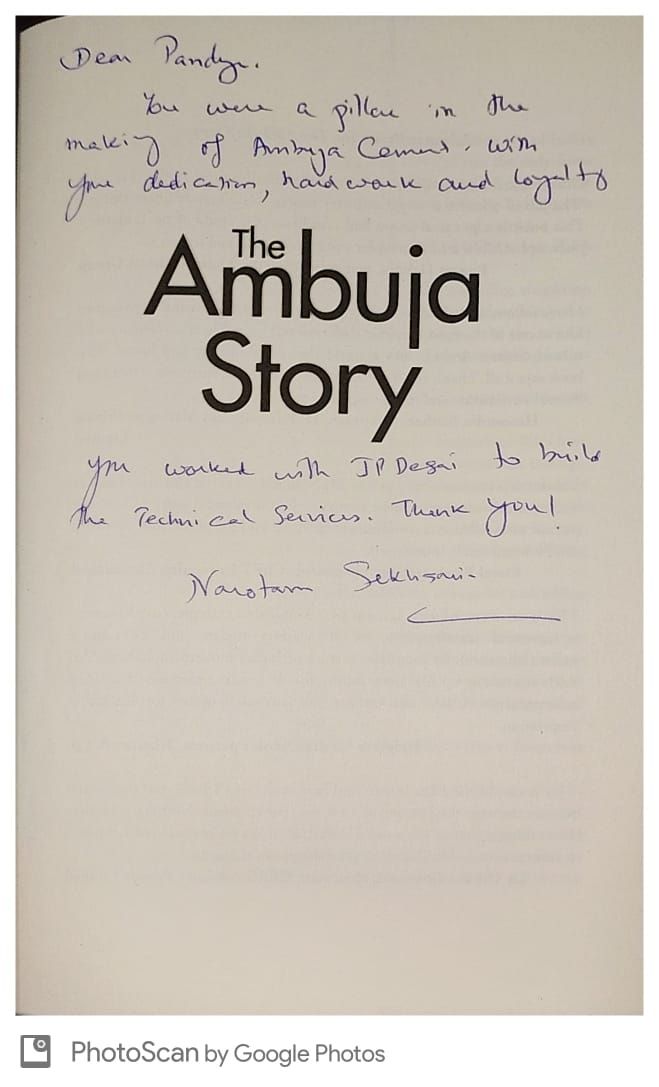 Dear Pandya.
You were a pillar in the
making of Ambuja Cement. with
your dedication, hard work and loyalty
The
Ambuja
Story
you worked with JP Desai to build
the Technical Services. Thank you!
Narotam Sekhsaria
PhotoScan by Google Photos